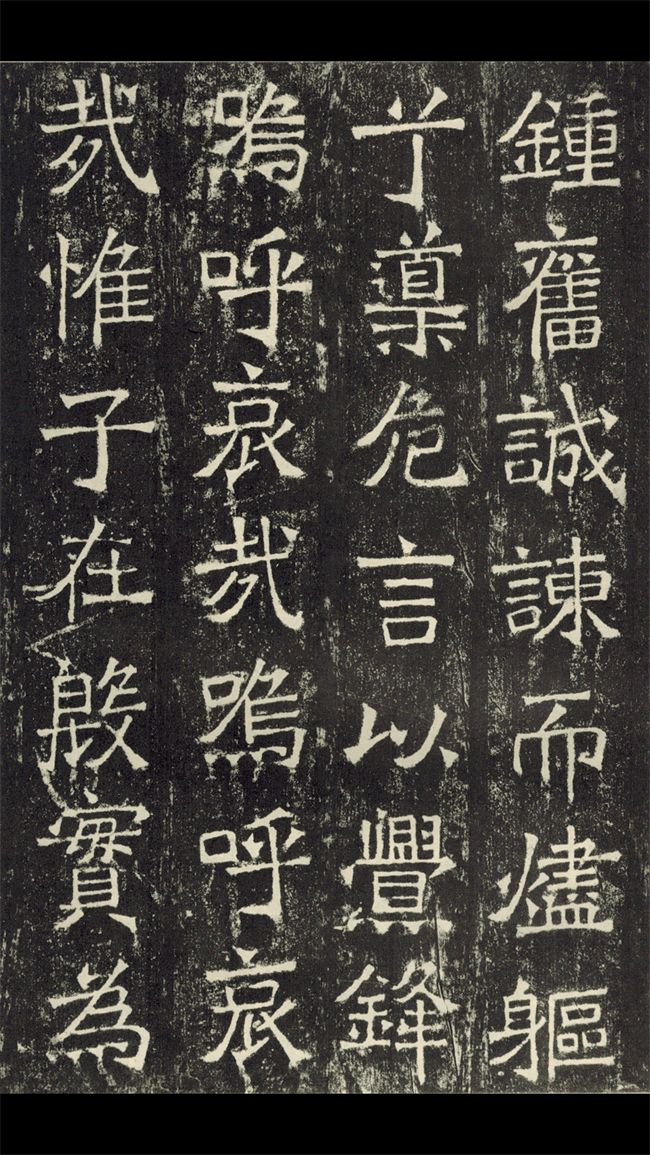 鍾舊誠諫而燼軀
兮危言以舋鋒
嗚呼哀哉嗚呼哀
哉惟子在殷實為